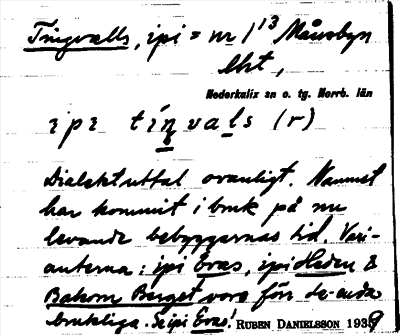 Tingvalls, ipi = nr 1¹³ Månsbyn
lht,
Nederkalix sn o. tg. Norrb. län
ɪpɪ tíŋvals (r)
Dialektuttal ovanligt. Namnet
har kommit i bruk på nu
levande bebyggarnas tid. Vari-
anterna: ipi Eras, ipi Heden &
Bakom Berget voro förr de enda
brukliga. Se ipi Eras! RUBEN DANIELSSON 1939